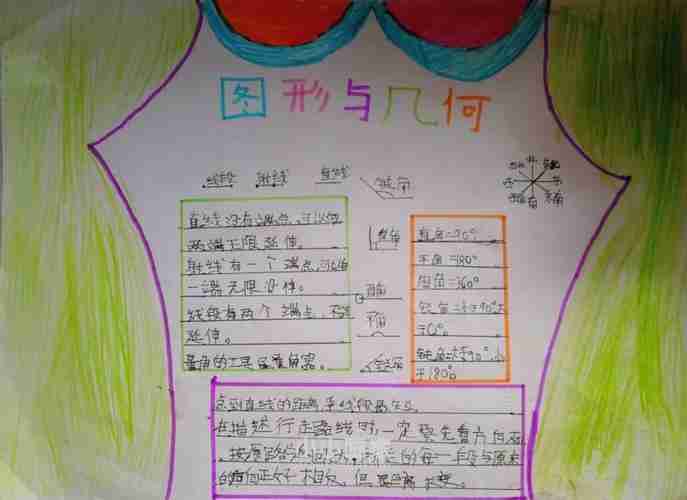 图形与几何
线段 射线 直线 钝角
北
西 东
南
直线没有端点,可以向
两端无限延伸。
射线有一个端点,可以向
一端无限延伸。
线段有两个端点,不能
延伸。
量角的工具是量角器。
直角
周角
平角
直角=90°
平角=180°
周角=360°
锐角=小于90°大
于0°
钝角=大于90°,小
于180°
点到直线的距离,垂线
在描述行走路线时,一定要先看方向
的方向正好相反,但距离不变。